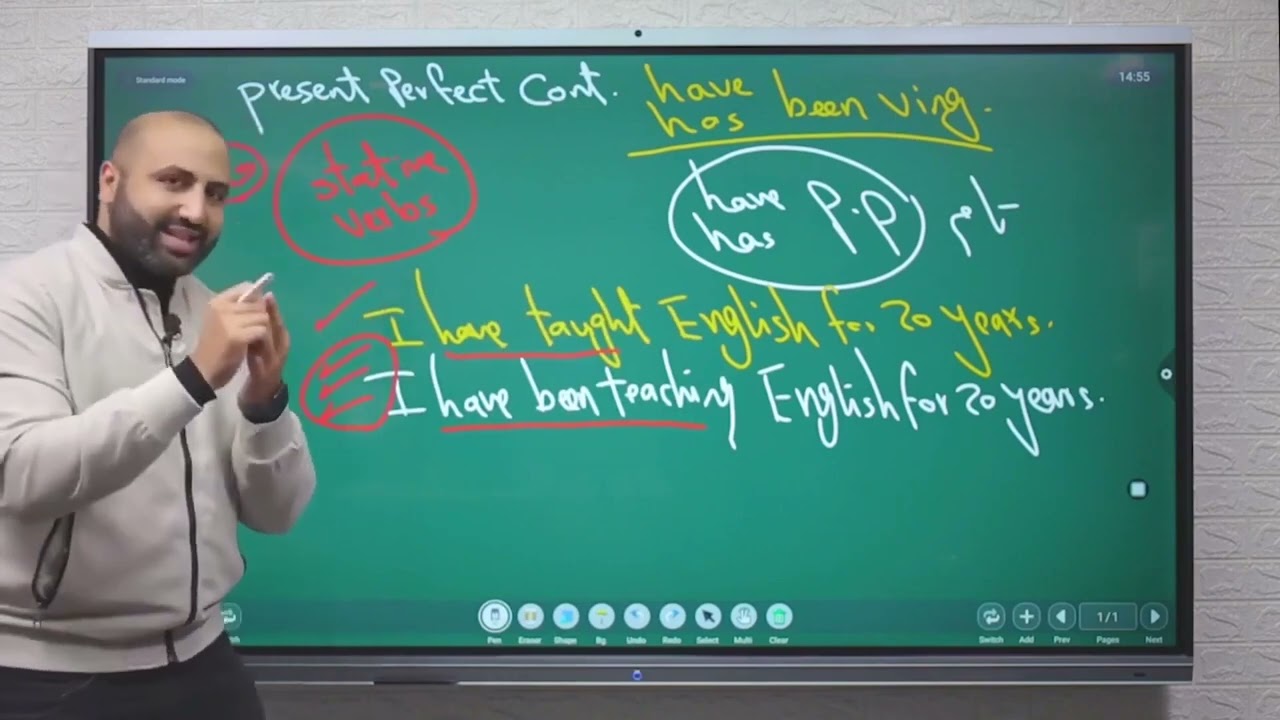 Standard mode
14:55
present Perfect Cont.
have
has been ving.
stative
verbs
have
has P.P تام
I have taught English for 20 years.
I have been teaching English for 20 years.
Pen Eraser Shape Bg Undo Redo Select Multi Clear
Switch Add Prev 1/1 Pages Next